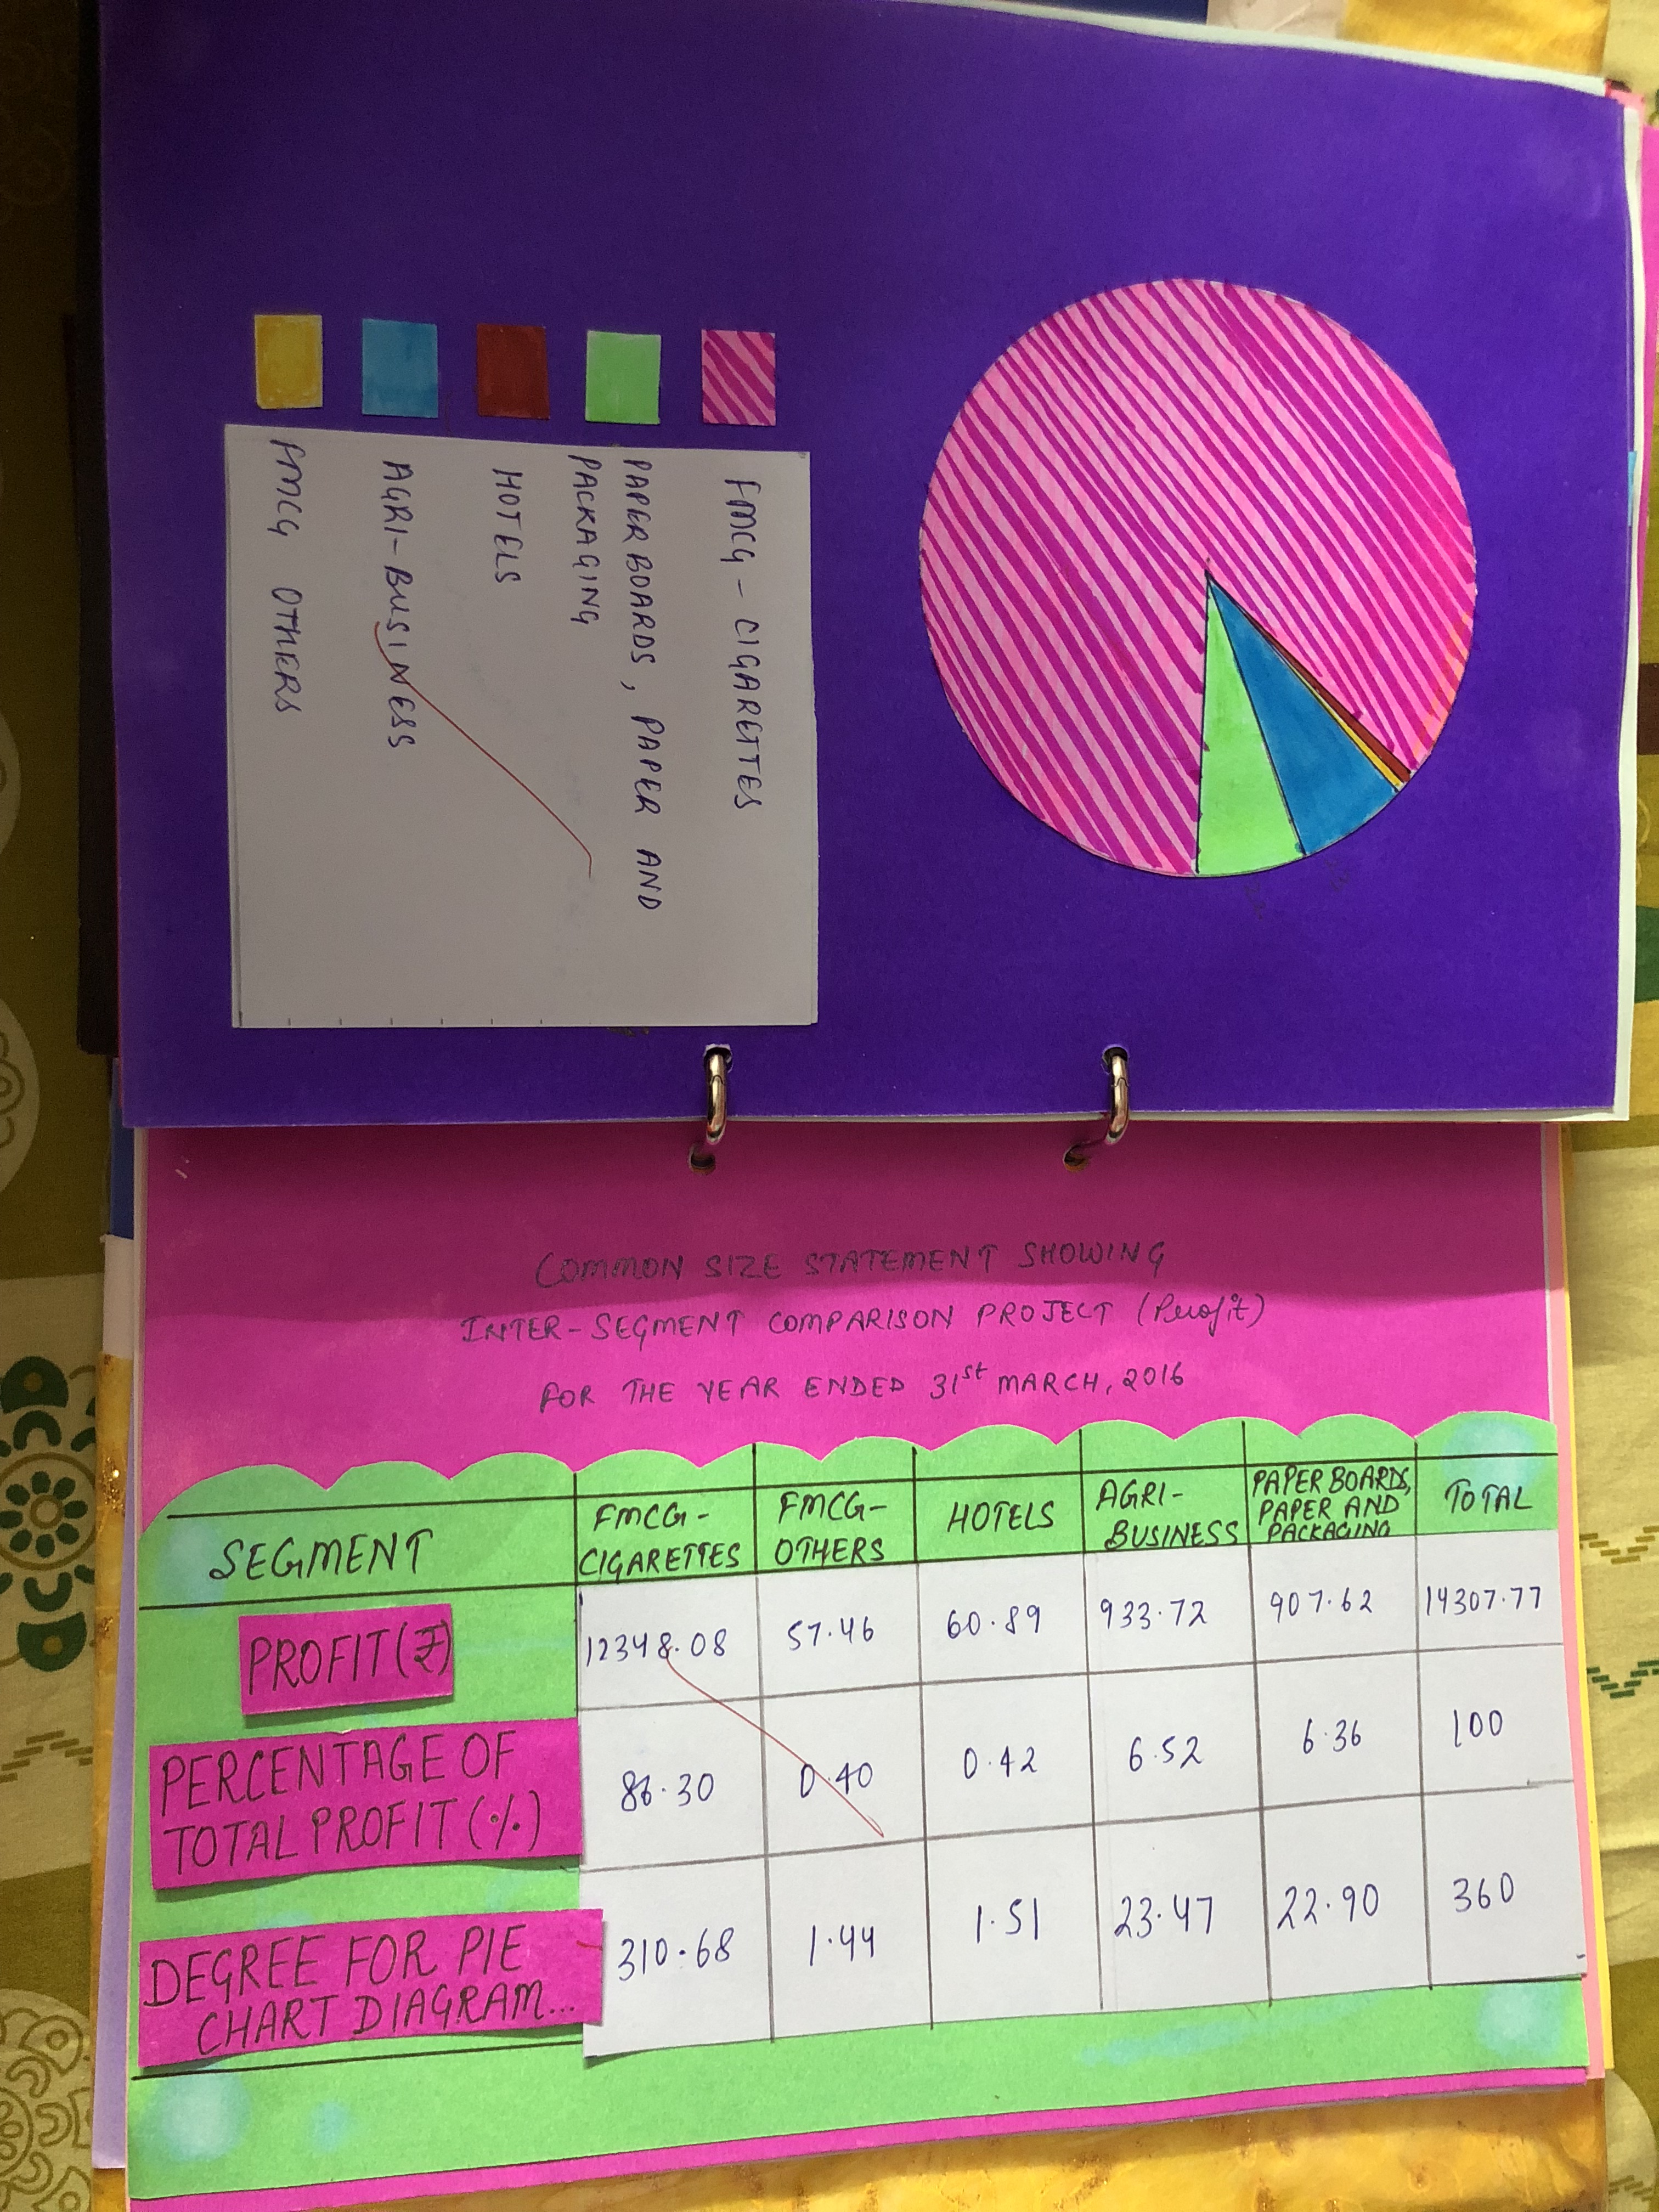 FMCG - CIGARETTES
PAPER BOARDS, PAPER AND
PACKAGING
HOTELS
AGRI-BUSINESS
FMCG OTHERS
COMMON SIZE STATEMENT SHOWING
INTER-SEGMENT COMPARISON PROJECT (Profit)
FOR THE YEAR ENDED 31st MARCH, 2016
SEGMENT
FMCG-
CIGARETTES
FMCG-
OTHERS
HOTELS
AGRI-
BUSINESS
PAPER BOARDS,
PAPER AND
PACKAGING
TOTAL
PROFIT (₹)
12348.08
57.46
60.89
933.72
907.62
14307.77
PERCENTAGE OF
TOTAL PROFIT (%)
86.30
0.40
0.42
6.52
6.36
100
DEGREE FOR PIE
CHART DIAGRAM...
310.68
1.44
1.51
23.47
22.90
360